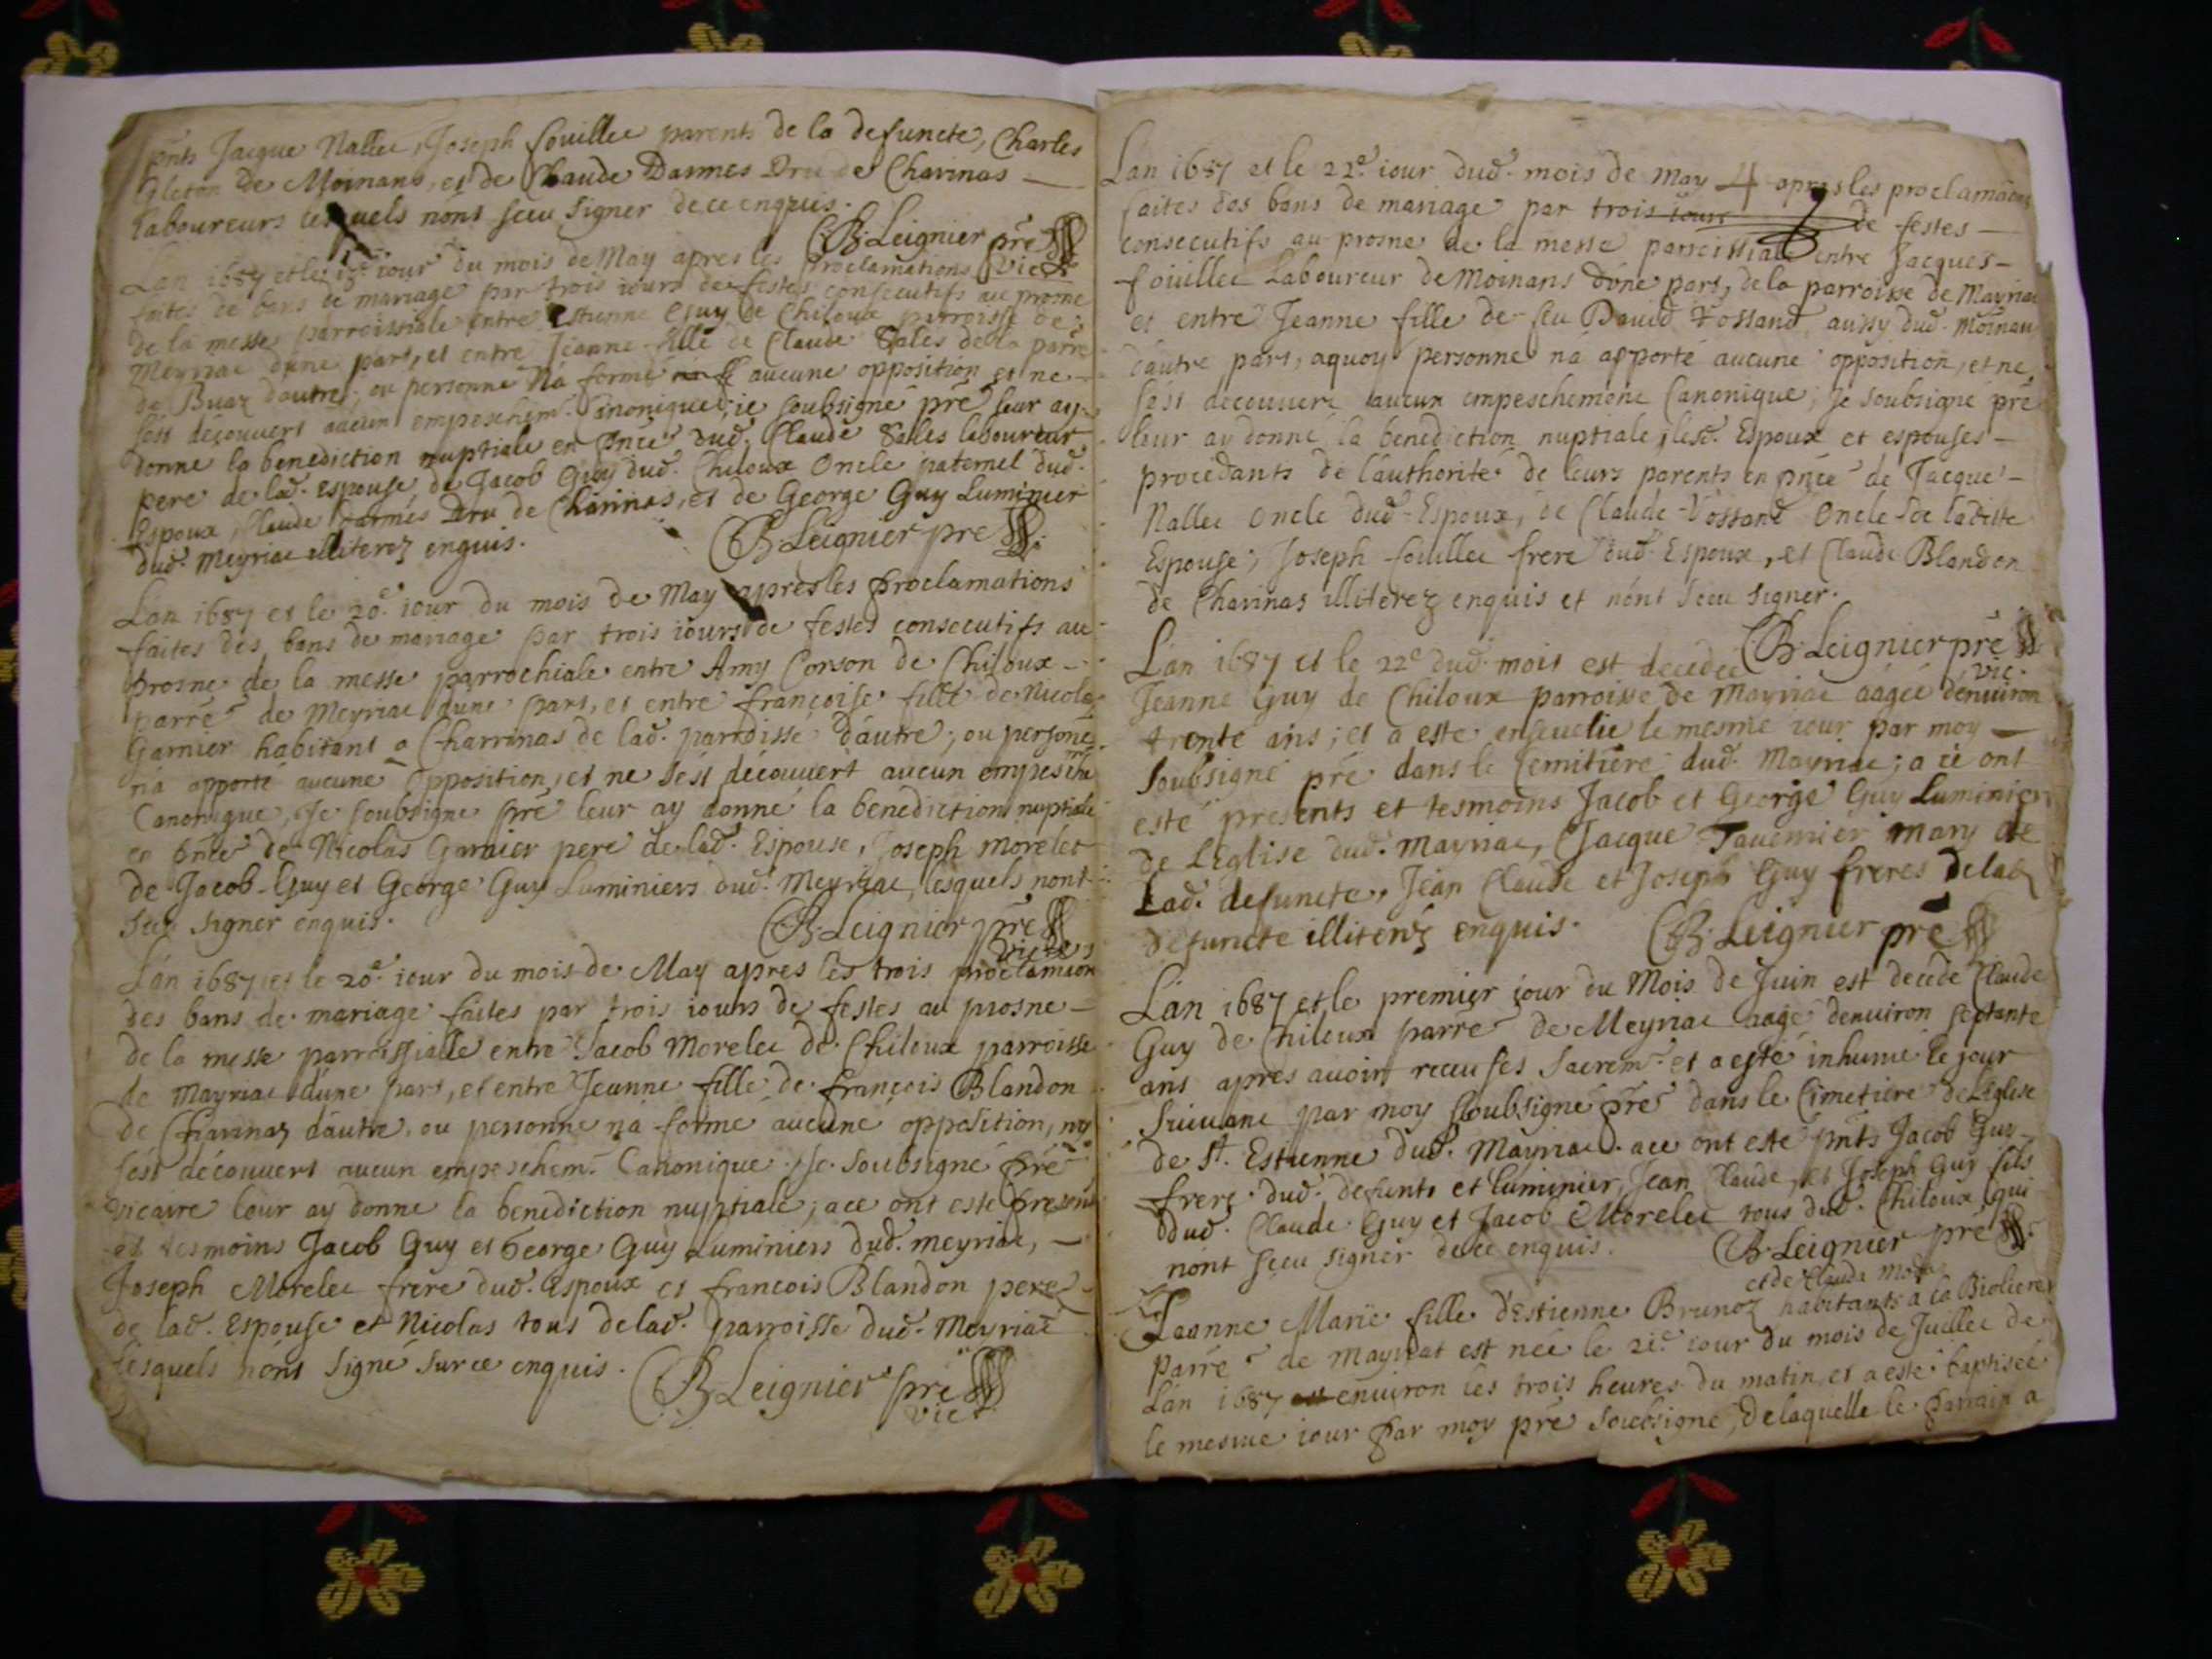 pnts Jacque Nallec, Joseph fouillee parents de la defuncte, Charles
Gleton de Moinans, et de Claude Darmes Dru de Charinas
laboureurs lesquels nónt sceu signer de ce enquis.
B. Leignier pre vic.
Lán 1687 et le iour du mois de May apres les proclamations
faites de bans de mariage par trois iours de festes consecutifs au prosne
de la messe parroissiale entre Estienne Guy de Chiloux parroisse de
Meyriac dúne part, et entre Jeanne fille de Claude Sales de la parre
de Buaz dautre, ou personne ná formé aucune opposition et ne
sést decouvert aucun empeschem. Canonique; ie soubsigné pre leur ay
donne la benediction nuptiale en pnce dud. Claude Sales laboureur
pere de lad. espouse, de Jacob Guy dud. Chiloux Oncle paternel dud.
Espoux, Claude Darmes Dru de Charinas, et de George Guy Luminier
dud. Meyriac illiterez enquis.
B. Leignier pre
Lán 1687 et le 20e. iour du mois de May apres les proclamations
faites des bans de mariage par trois iours de festes consecutifs au
prosne de la messe parrochiale entre Amy Corson de Chiloux
parre de Meyriac dune part, et entre françoise fille de Nicolas
Garnier habitant a Charrinas de lad. parroisse dáutre; ou persone
ná apporté aucune opposition, et ne sést découvert aucun empeschem
Canonique, Je soubsigne pre leur ay donné la benediction nuptiale
en pnce de Nicolas Garnier pere de lad. Espouse, Joseph Morelet
de Jacob Guy et George Guy Luminiers dud. Meyriac, lesquels nont
sceu signer enquis.
B. Leignier pre vic.
Lán 1687 et le 20e. iour du mois de May apres les trois proclamaon
des bans de mariage faites par trois iours de festes au prosne
de la messe parroissialle entre Jacob Morelec de Chiloux parroisse
de Mayriac dúne part, et entre Jeanne fille de françois Blandon
de Charinaz dáutre, ou personne ná formé aucune opposition, ny
sést découvert aucun empeschem. Canonique. Je soubsigné pre
vicaire leur ay donne la benediction nuptiale; a ce ont esté presens
et tesmoins Jacob Guy et George Guy Luminiers dud. meyriac,
Joseph Morelec frere dud. Espoux et francois Blandon pere
de lad. Espouse et Nicolas tous de lad. parroisse dud. Meyriac
lesquels nónt signé sur ce enquis.
B. Leignier pre vic.
Lán 1687 et le 22e. iour dud. mois de may apres les proclamaons
faites des bans de mariage par trois iours de festes
consecutifs au prosne de la messe parroissiale entre Jacques
foüillee Laboureur de Moinans dúne part, de la parroisse de Mayriac
et entre Jeanne fille de feu David Vossand aussy dud. Moinan
dáutre part, aquoy personne ná apporté aucune opposition, et ne
sést decouvert aucun empeschement Canonique; Je soubsigné pre
leur ay donné la benediction nuptiale, lesd. Espoux et espouses
procedants de láuthorité de leurs parents en pnce de Jacque
Nallec Oncle dud. Espoux, de Claude Vossand Oncle de ladiste
Espouse; Joseph fouillee frere dud. Espoux, et Claude Blandon
de Charinas illiterez enquis et nónt sceu signer.
B. Leignier pre vic.
Lán 1687 et le 22e dud. mois est decedee
Jeanne Guy de Chiloux parroisse de Mayriac aâgée dénuiron
trente ans; et a esté enseuelie le mesme iour par moy
soubsigné pre dans le semitiere dud. Mayriac; a ce ont
esté presents et tesmoins Jacob et George Guy Luminiers
de Léglise dud. Mayriac, Jacque Tavernier mary de
Lad. defuncte, Jean Claude et Joseph Guy freres de lad.
defuncte illiterez enquis.
B. Leignier pre
Lán 1687 et le premier iour du Mois de Juin est decede Claude
Guy de Chiloux parre de Meyriac aagé denuiron septante
ans apres auoir receu ses Sacrem. et a esté inhumé le jour
suiuant par moy soubsigné pre dans le Cimetiere de Léglise
de St. Estienne dud. Mayriac. a ce ont esté pnts Jacob Guy
frere dud. defunts et luminier, Jean Claude, et Joseph Guy fils
dud. Claude Guy et Jacob Morelec tous dud. Chiloux qui
nónt sceu signer de ce enquis.
B. Leignier pre
et de Claude
Jeanne Marie fille dEstienne Brunoz habitants a la Bioliere
parre de Mayriat est née le 21e. iour du mois de Juillec de
Lán 1687 enuiron les trois heures du matin, et a esté baptisée
le mesme iour par moy pré soubsigné, de laquelle le parrain a